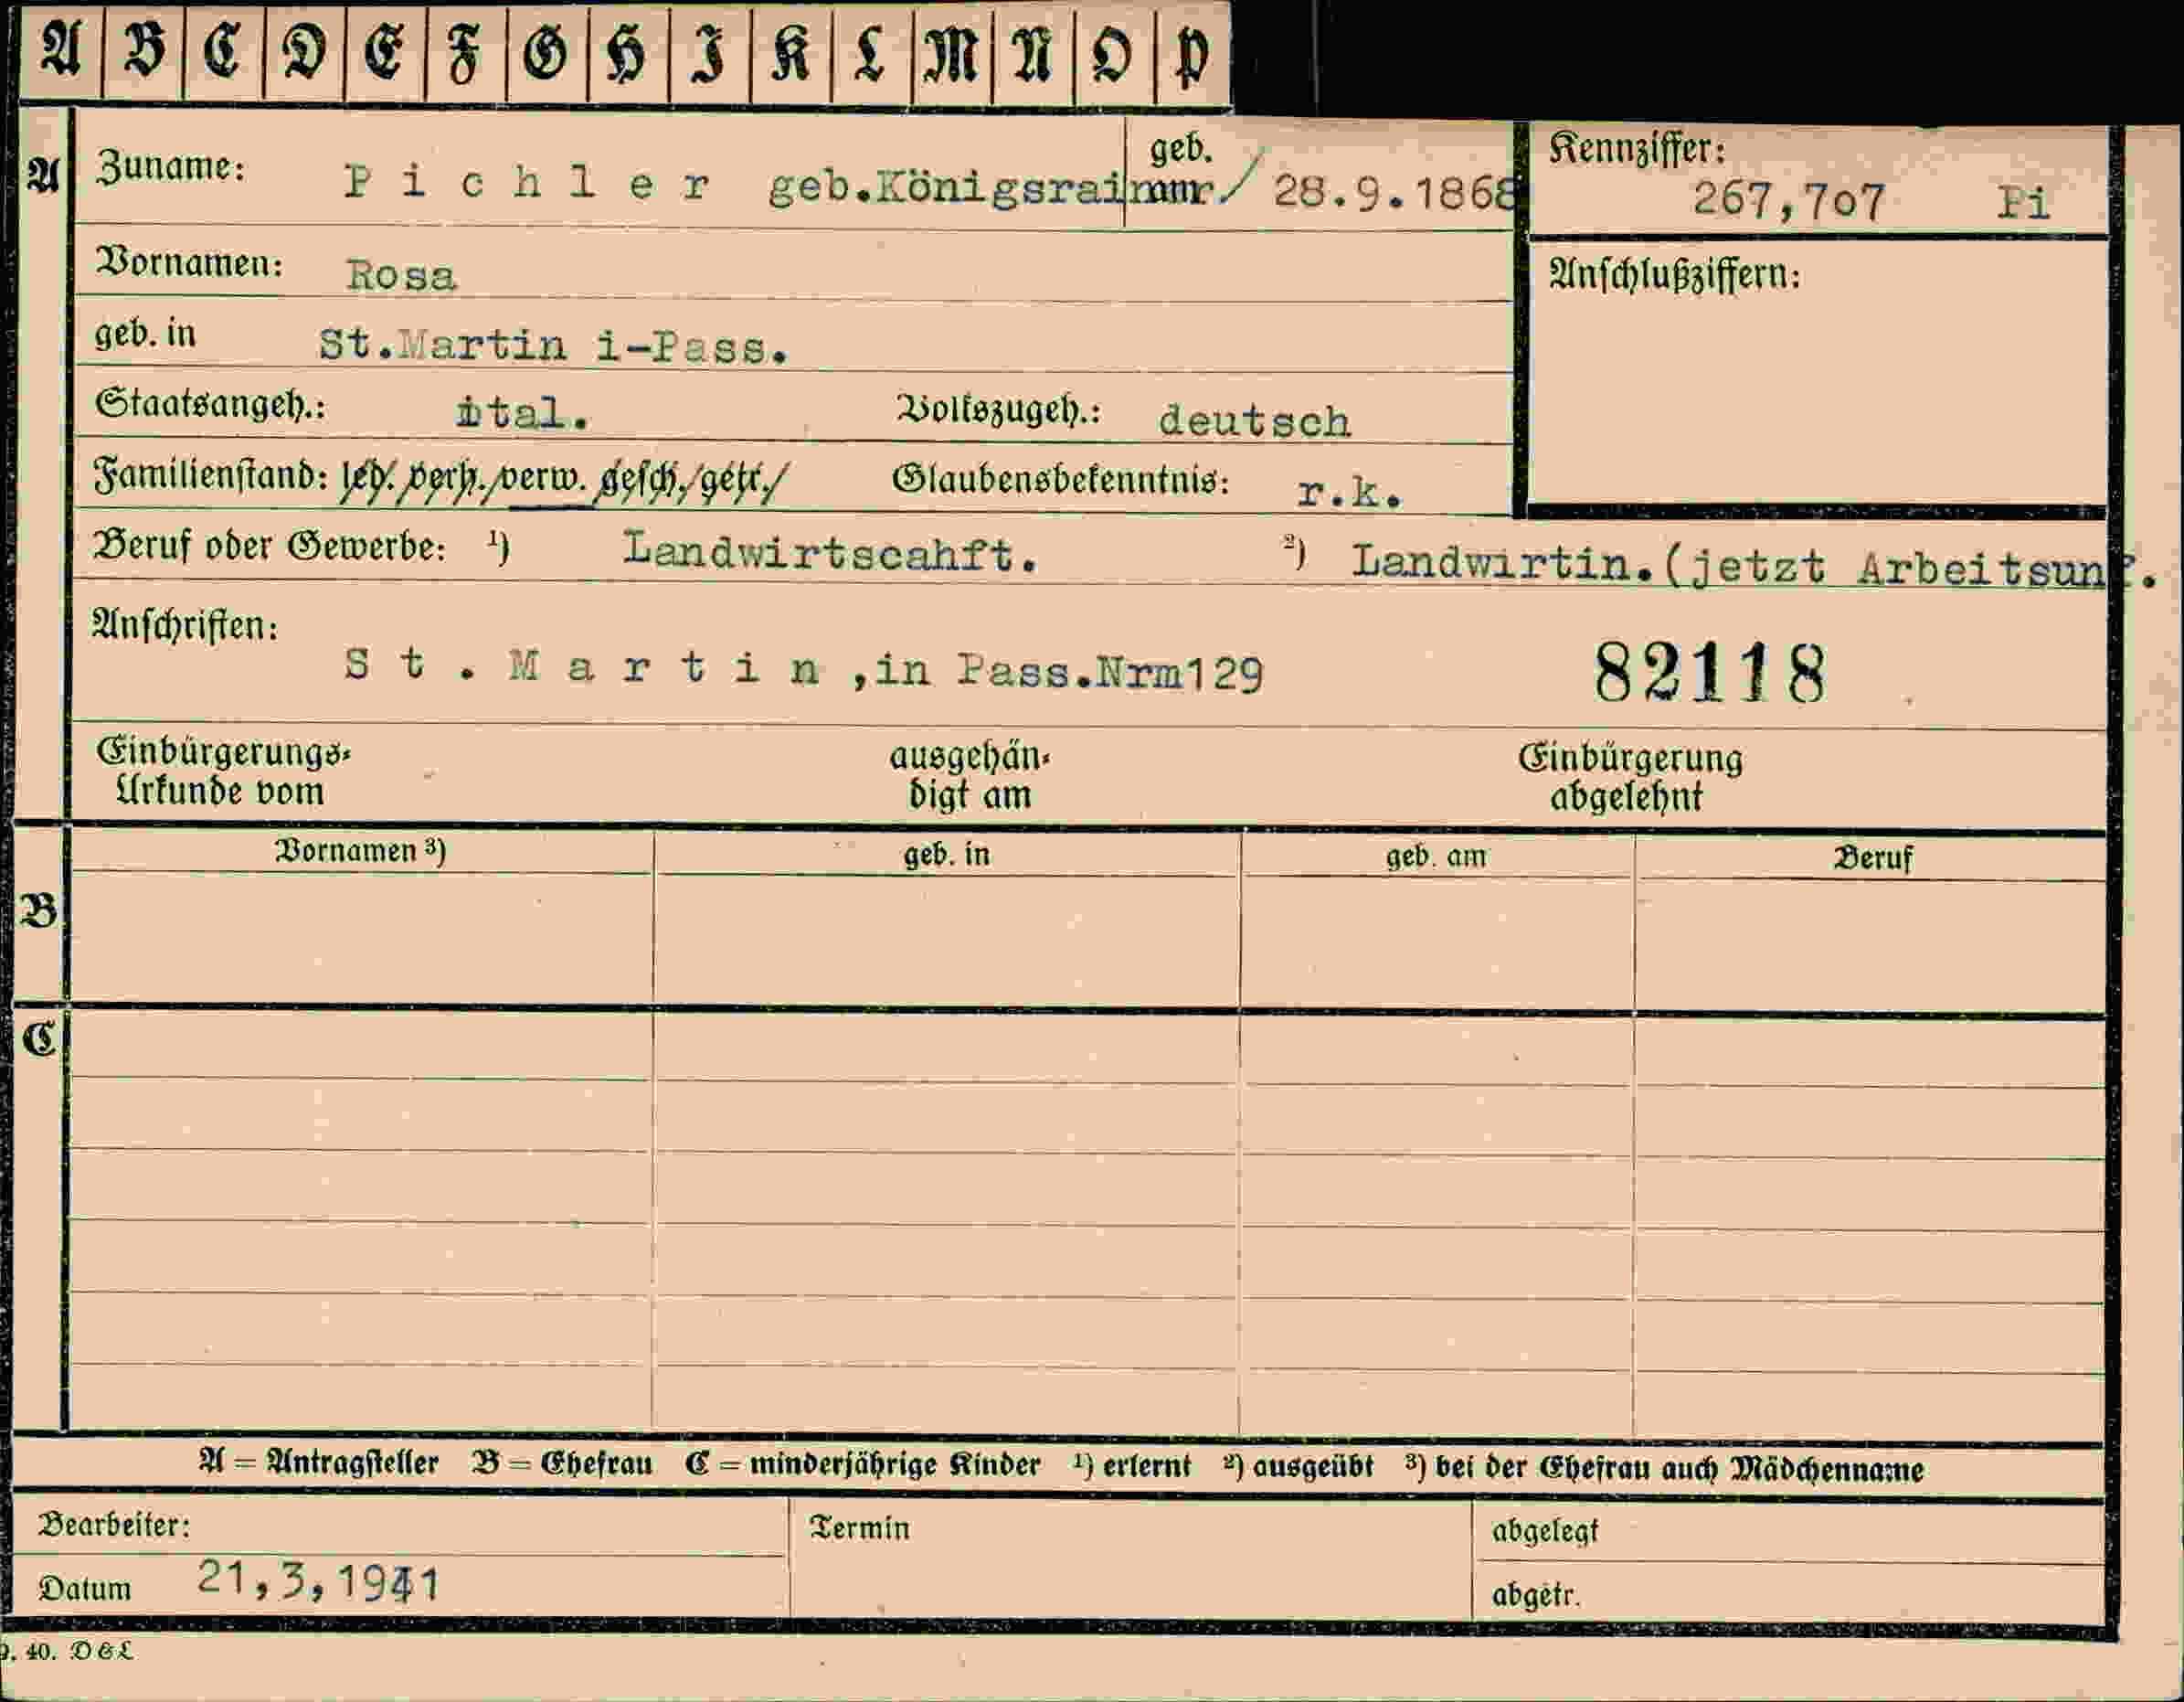 A B C D E F G H I K L M N O P
A Zuname: Pichler geb.Königsrainer geb. am / 28.9.1868 Kennziffer: 267,7o7 Pi
Vornamen: Rosa Anschlußziffern:
geb. in St.Martin i-Pass.
Staatsangeh.: ital. Volkszugeh.: deutsch
Familienstand: led. verh. verw. gesch. getr. Glaubensbekenntnis: r.k.
Beruf oder Gewerbe: ¹) Landwirtscahft. ²) Landwirtin.(jetzt Arbeitsunf.
Anschriften:
St.Martin,in Pass.Nrm129 82118
Einbürgerungs- ausgehän- Einbürgerung
Urkunde vom digt am abgelehnt
Vornamen ³) geb. in geb. am Beruf
B
C
A = Antragsteller B = Ehefrau C = minderjährige Kinder ¹) erlernt ²) ausgeübt ³) bei der Ehefrau auch Mädchenname
Bearbeiter: Termin abgelegt
Datum 21,3,1941 abgetr.
40. D&L